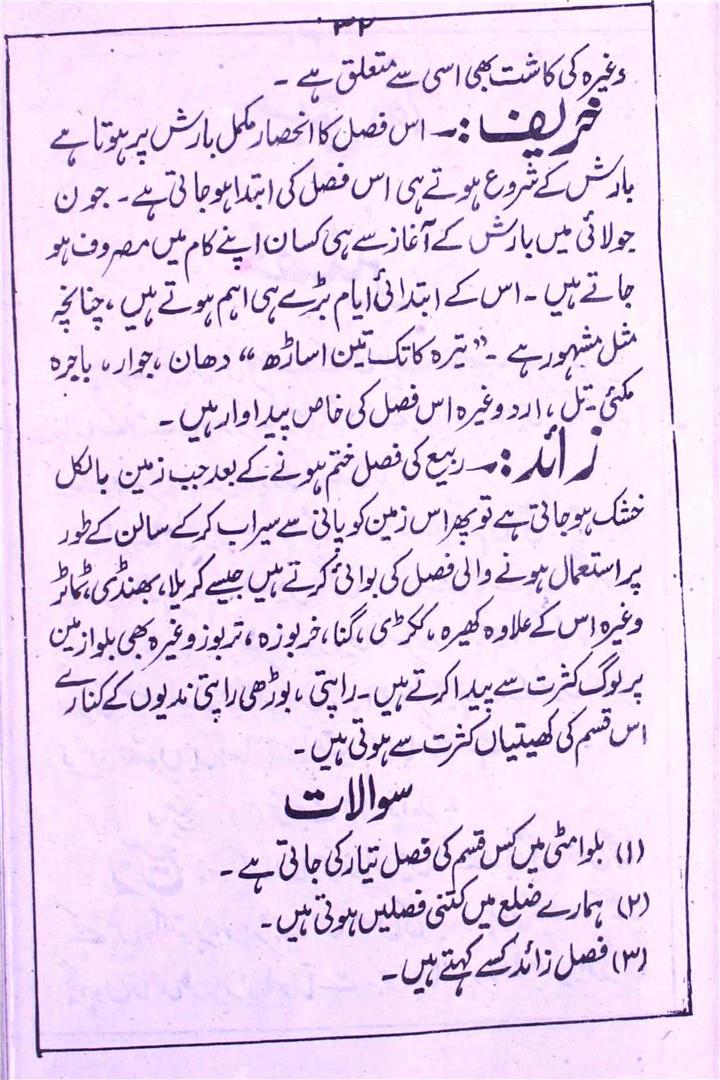 ۳۲
وغیرہ کی کاشت بھی اسی سے متعلق ہے ۔
خریف :۔ اس فصل کا انحصار مکمل بارش پر ہوتا ہے
بارش کے شروع ہوتے ہی اس فصل کی ابتدا ہو جاتی ہے ۔ جون
جولائی میں بارش کے آغاز سے ہی کسان اپنے کام میں مصروف ہو
جاتے ہیں ۔ اس کے ابتدائی ایام بڑے ہی اہم ہوتے ہیں ، چنانچہ
مثل مشہور ہے ۔ ” تیرہ کاتک تین اساڑھ “ دھان ، جوار ، باجرہ
مکئی ۔ تل ، ارد وغیرہ اس فصل کی خاص پیداوار ہیں ۔
زائد :۔ ربیع کی فصل ختم ہونے کے بعد جب زمین بالکل
خشک ہو جاتی ہے تو پھر اس زمین کو پانی سے سیراب کر کے سالن کے طور
پر استعمال ہونے والی فصل کی بوائی کرتے ہیں جیسے کریلا ، بھنڈی ، ٹماٹر
وغیرہ اس کے علاوہ کھیرہ ، ککڑی ، گنا ، خربوزہ ، تربوز وغیرہ بھی بلوا زمین
پر لوگ کثرت سے پیدا کرتے ہیں ۔ راپتی ، بوڑھی راپتی ندیوں کے کنارے
اس قسم کی کھیتیاں کثرت سے ہوتی ہیں ۔
سوالات
(۱) بلوا مٹی میں کس قسم کی فصل تیار کی جاتی ہے ۔
(۲) ہمارے ضلع میں کتنی فصلیں ہوتی ہیں ۔
(۳) فصل زائد کسے کہتے ہیں ۔